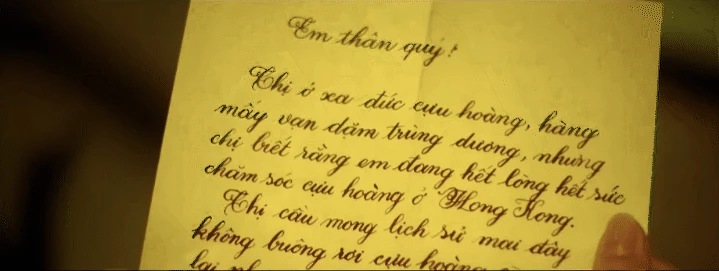 Em thân quý!
Chị ở xa đức cựu hoàng, hàng
mấy vạn dặm trùng dương, nhưng
chị biết rằng em đang hết lòng hết sức
chăm sóc cựu hoàng ở Hong Kong.
Chị cầu mong lịch sử mai đây
không buông rơi cựu hoàng
lại